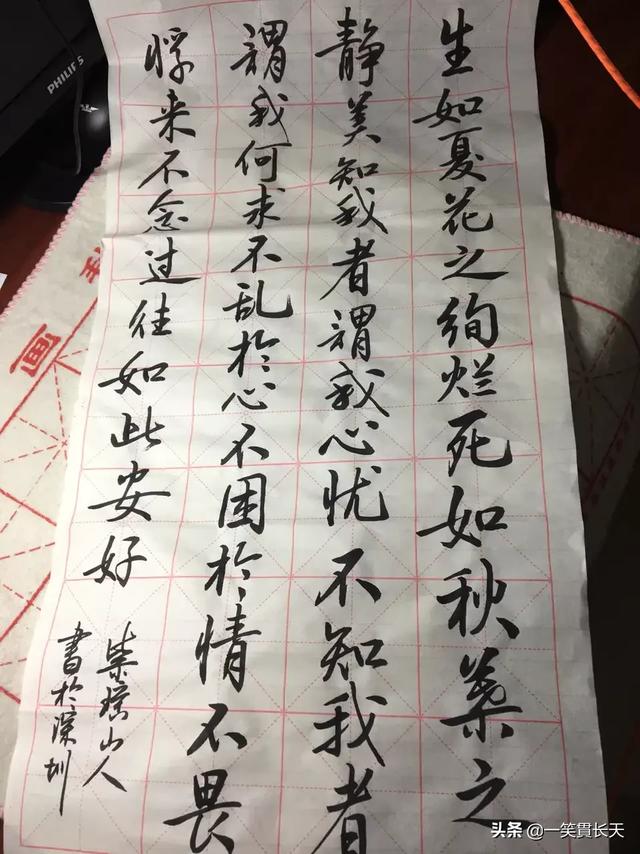 生如夏花之绚烂死如秋葉之
静美知我者謂我心忧不知我者
謂我何求不乱於心不困於情不畏
将来不念过往如此安好
山人
書於深圳
PHILIPS
画
头条 @一笑貫长天